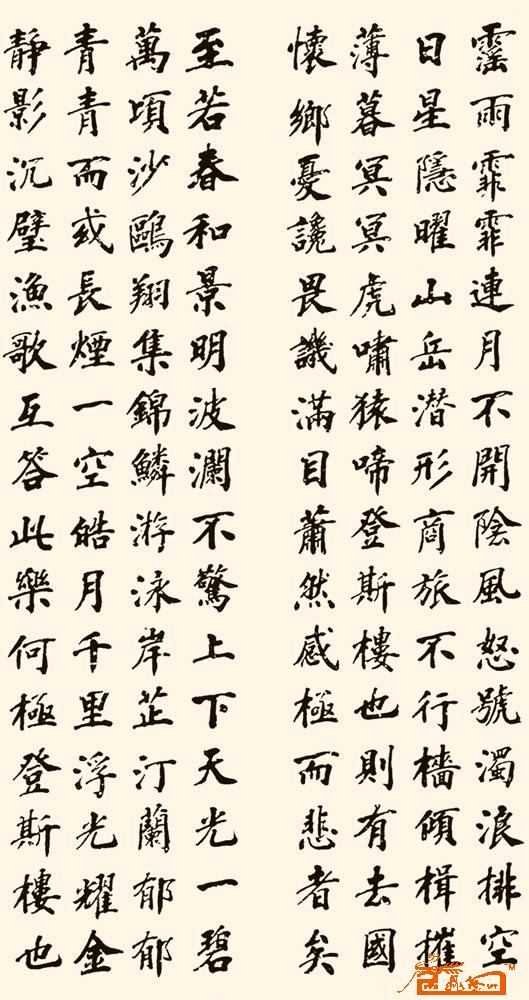 霪雨霏霏連月不開陰風怒號濁浪排空
日星隱曜山岳潜形商旅不行檣傾楫摧
薄暮冥冥虎嘯猿啼登斯樓也則有去國
懷鄉憂讒畏譏滿目蕭然感極而悲者矣
至若春和景明波瀾不驚上下天光一碧
萬頃沙鷗翔集錦鱗游泳岸芷汀蘭郁郁
青青而或長煙一空皓月千里浮光耀金
靜影沉璧漁歌互答此樂何極登斯樓也